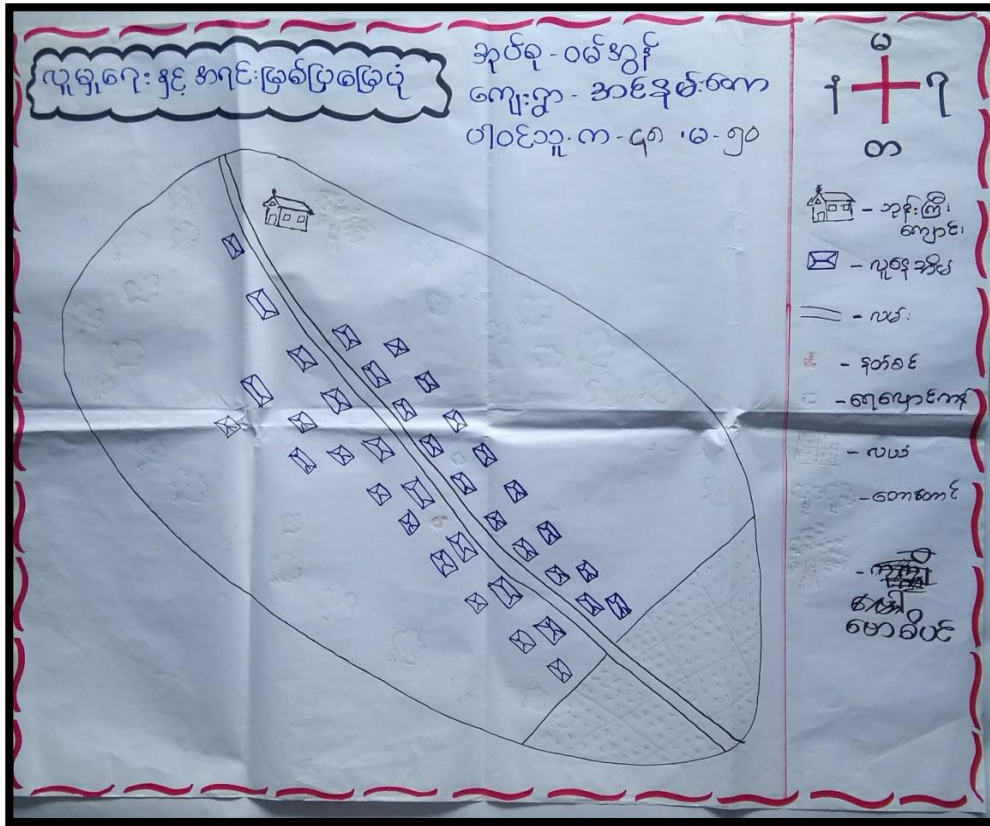 လူမှုရေး နှင့် အရင်းမြစ်ပြမြေပုံ
အုပ်စု - ဝမ်အွန်
ကျေးရွာ - အင်နမ်းတော
ပါဝင်သူ - က - ၄၈ ၊ မ - ၅၀
မ
န
တ
- ဘုန်းကြီး
ကျောင်း
- လူနေအိမ်
- လမ်း
- နတ်စင်
- ရေလှောင်ကန်
- လယ်
- တောတောင်
ဗောဓိပင်